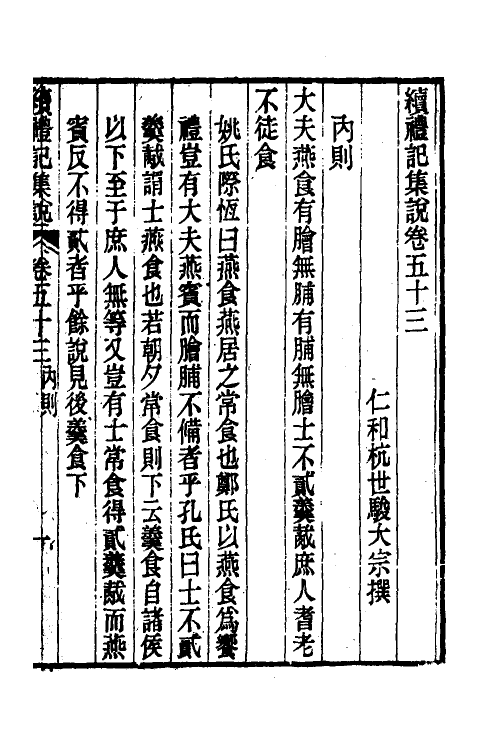 續禮記集說卷五十三
仁和杭世駿大宗撰
內則
大夫燕食有膾無脯有脯無膾士不貳羹胾庶人耆老
不徒食
姚氏際恆曰燕食燕居之常食也鄭氏以燕食爲饗
禮豈有大夫燕賓而膾脯不備者乎孔氏曰士不貳
羹胾謂士燕食也若朝夕常食則下云羹食自諸侯
以下至于庶人無等又豈有士常食得貳羹胾而燕
賓反不得貳者乎餘說見後羹食下
續禮記集說 卷五十三 內則 一